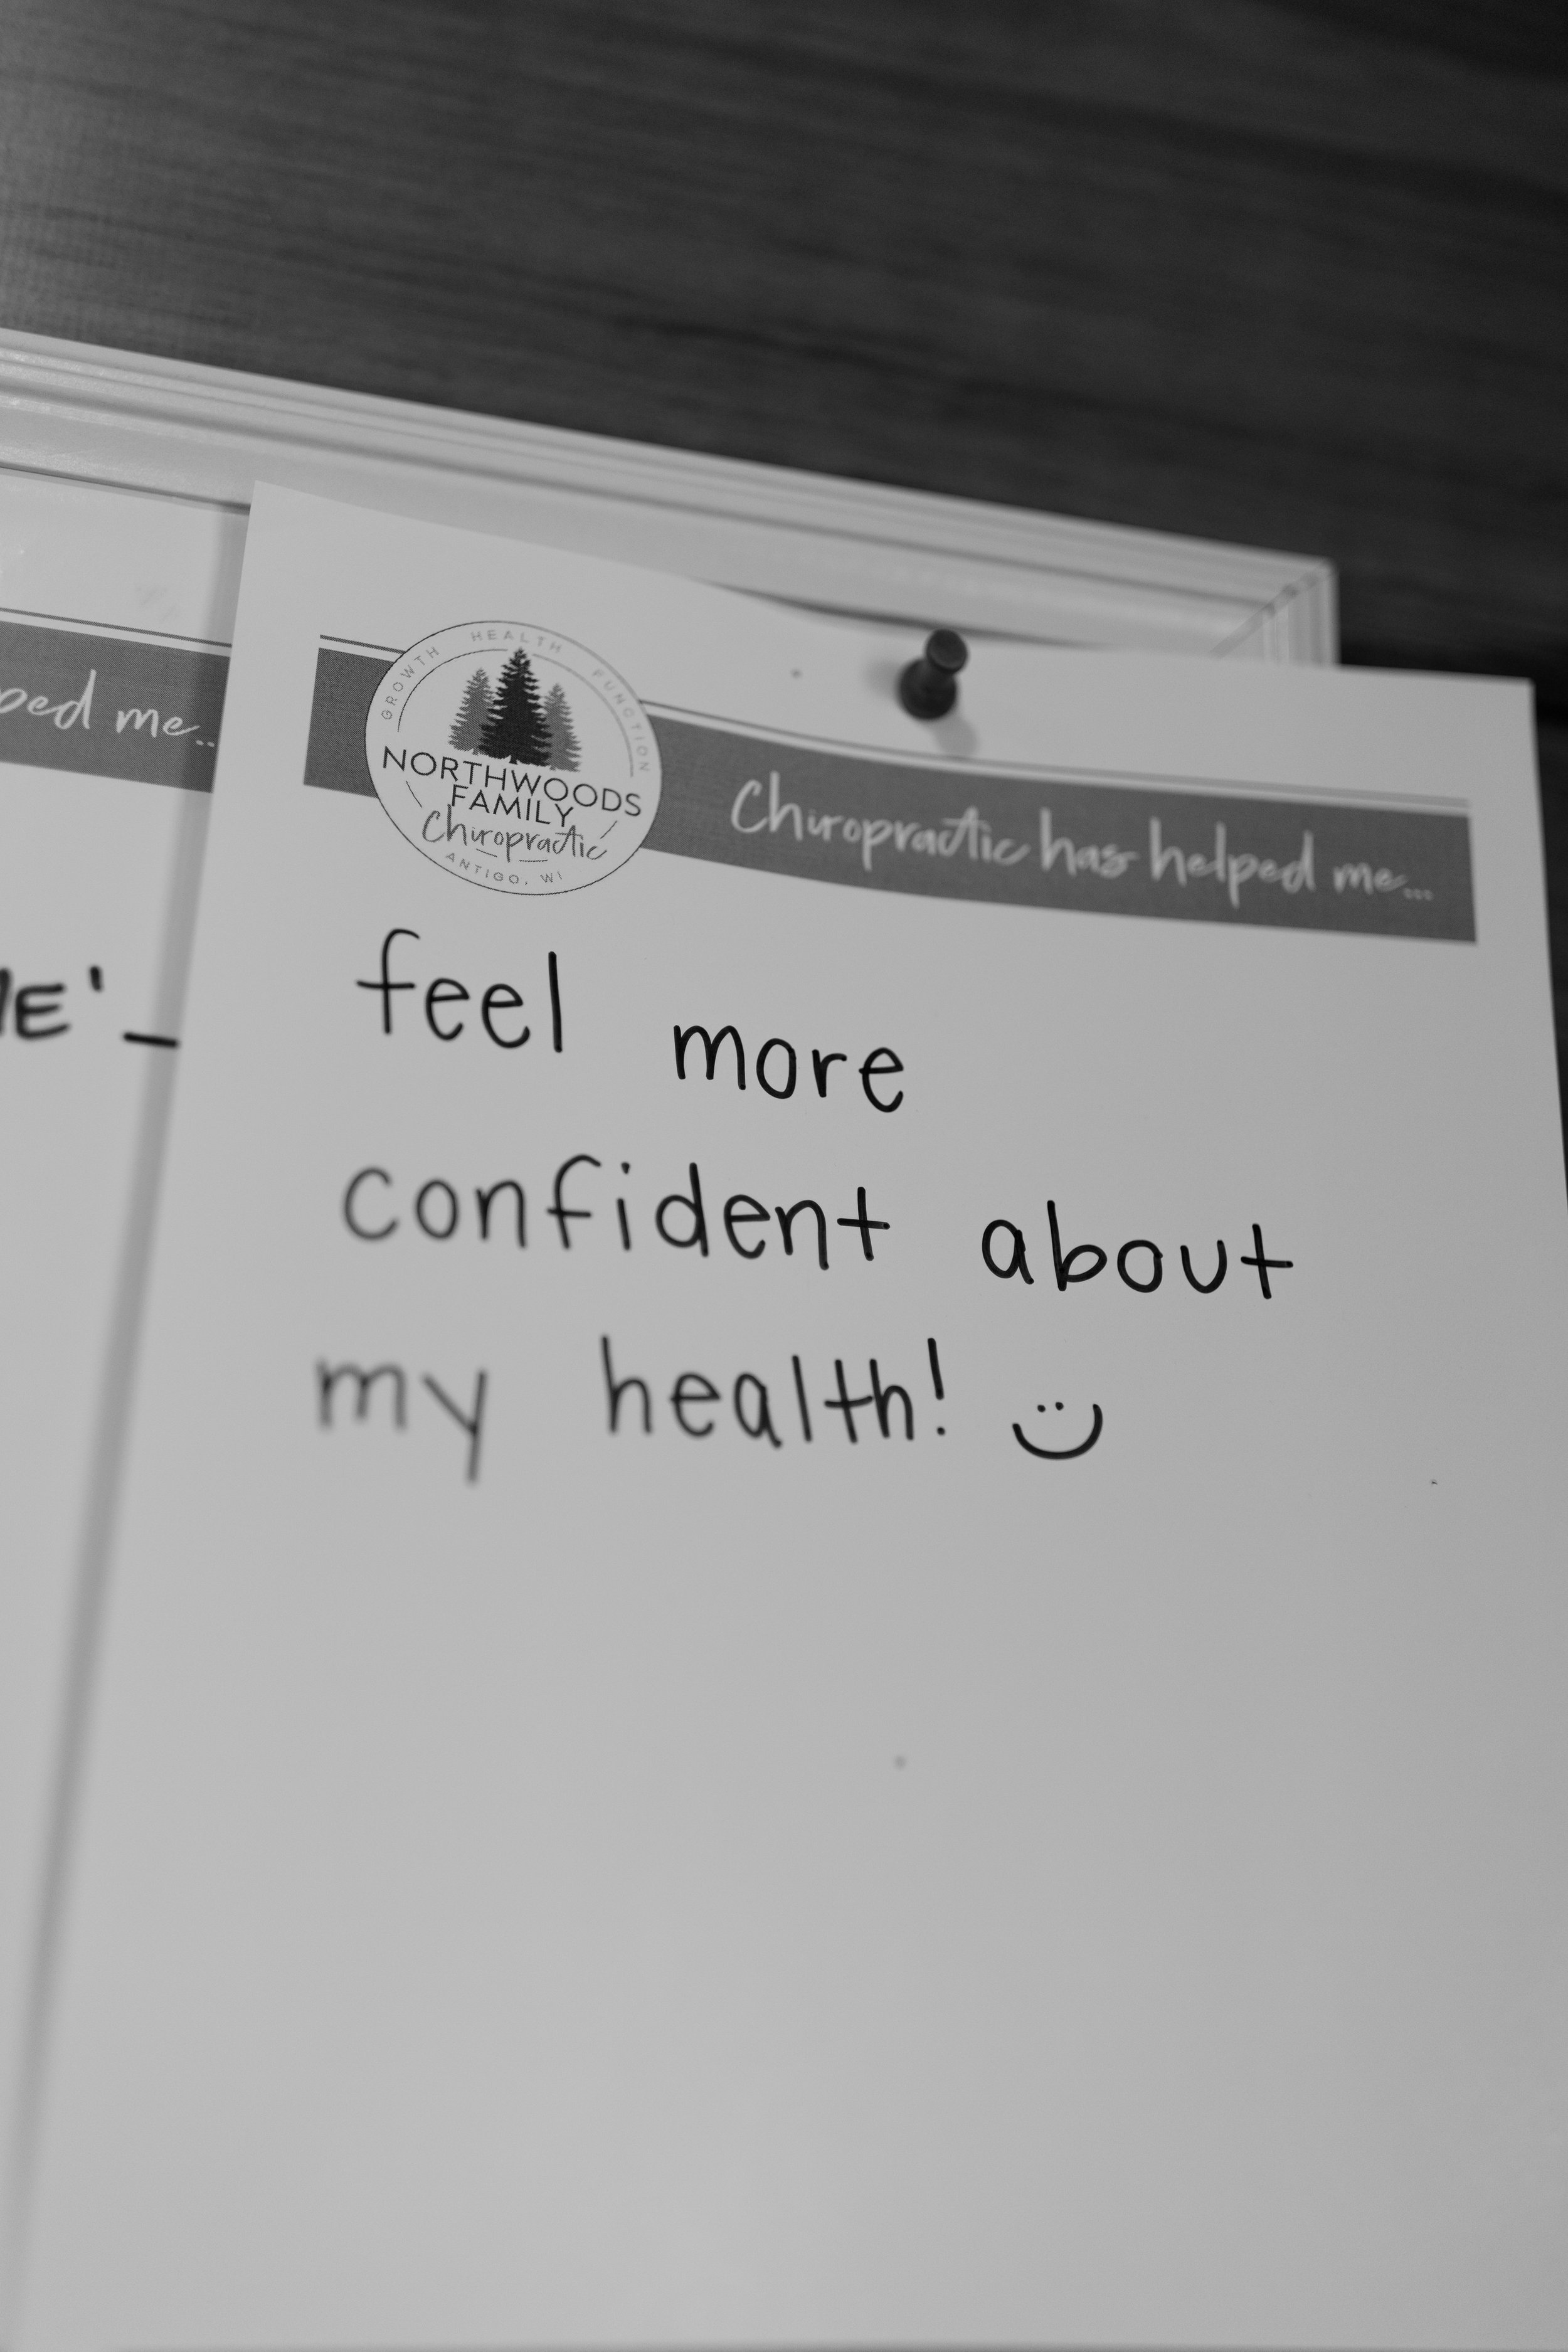 ped me...
E'_
GROWTH HEALTH FUNCTION
NORTHWOODS
FAMILY
Chiropractic
ANTIGO, WI
Chiropractic has helped me...
feel more
confident about
my health!